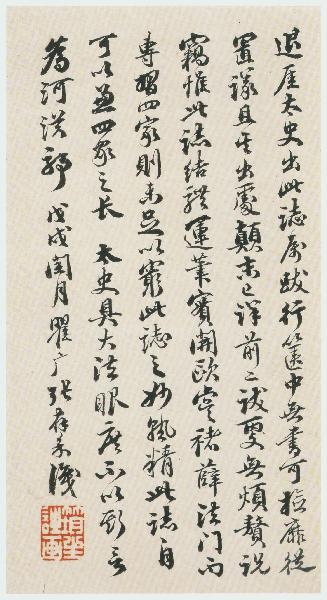 退厓太史出此誌属跋行箧中無書可檢靡從
置議且其出處顛末已詳前二跋更無煩贅説
竊惟此誌结體運筆實開歐虞褚薛法門而
專習四家則未足以窮此誌之妙熟精此誌自
可以兼四家之长 太史具大法眼度不以斯言
為河漢耶 戊戌閏月瞿广張
識